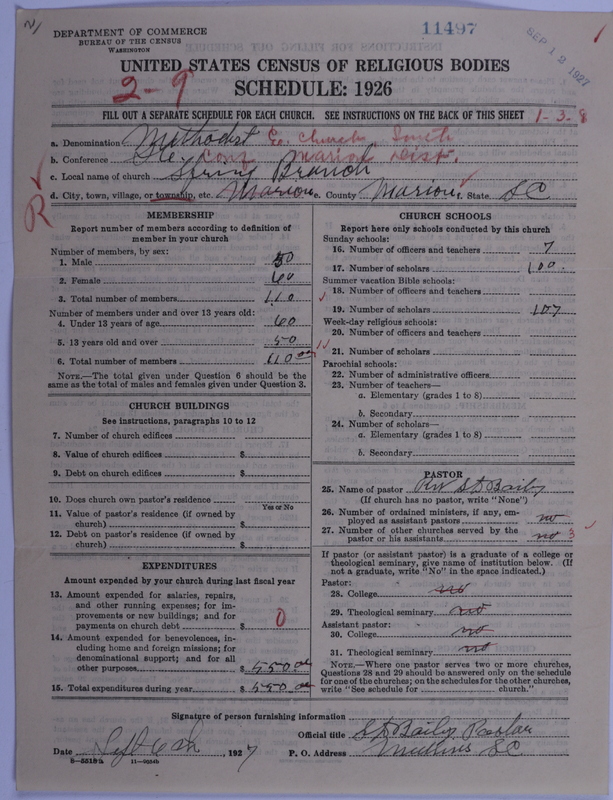 DEPARTMENT OF COMMERCE
BUREAU OF THE CENSUS
WASHINGTON
11497
SEP 12 1927
UNITED STATES CENSUS OF RELIGIOUS BODIES
2-9
SCHEDULE: 1926
FILL OUT A SEPARATE SCHEDULE FOR EACH CHURCH. SEE INSTRUCTIONS ON THE BACK OF THIS SHEET 1-3-8
a. Denomination Methodist E. Church South
b. Conference Conf Marion Dist.
c. Local name of church Spring Branch
d. City, town, village, or township, etc. Marion e. County Marion State SC
R
MEMBERSHIP
Report number of members according to definition of member in your church
Number of members, by sex:
1. Male 50
2. Female 60
3. Total number of members 110
Number of members under and over 13 years old:
4. Under 13 years of age 60
5. 13 years old and over 50
6. Total number of members 110
NOTE.—The total given under Question 6 should be the same as the total of males and females given under Question 3.
CHURCH BUILDINGS
See instructions, paragraphs 10 to 12
7. Number of church edifices
8. Value of church edifices $
9. Debt on church edifices $
10. Does church own pastor's residence
Yes or No
11. Value of pastor's residence (if owned by church) $
12. Debt on pastor's residence (if owned by church) $
EXPENDITURES
Amount expended by your church during last fiscal year
13. Amount expended for salaries, repairs, and other running expenses; for improvements or new buildings; and for payments on church debt $ 0
14. Amount expended for benevolences, including home and foreign missions; for denominational support; and for all other purposes $ 550.00
15. Total expenditures during year $ 550.00
CHURCH SCHOOLS
Report here only schools conducted by this church
Sunday schools:
16. Number of officers and teachers 7
17. Number of scholars 100.
Summer vacation Bible schools:
18. Number of officers and teachers
19. Number of scholars 107
Week-day religious schools:
20. Number of officers and teachers
21. Number of scholars
Parochial schools:
22. Number of administrative officers
23. Number of teachers—
a. Elementary (grades 1 to 8)
b. Secondary
24. Number of scholars—
a. Elementary (grades 1 to 8)
b. Secondary
PASTOR
25. Name of pastor Rev S D Baily
(If church has no pastor, write "None")
26. Number of ordained ministers, if any, employed as assistant pastors no
27. Number of other churches served by the pastor or his assistants no 3
If pastor (or assistant pastor) is a graduate of a college or theological seminary, give name of institution below. (If not a graduate, write "No" in the space indicated.)
Pastor:
28. College no
29. Theological seminary no
Assistant pastor:
30. College no
31. Theological seminary no
NOTE.—Where one pastor serves two or more churches, Questions 28 and 29 should be answered only on the schedule for one of the churches; on the schedules for the other churches, write "See schedule for church."
Signature of person furnishing information
Official title S D Baily Pastor
Date Sept 6th, 1927 P. O. Address Mullins SC
8-5518a 11-9024b